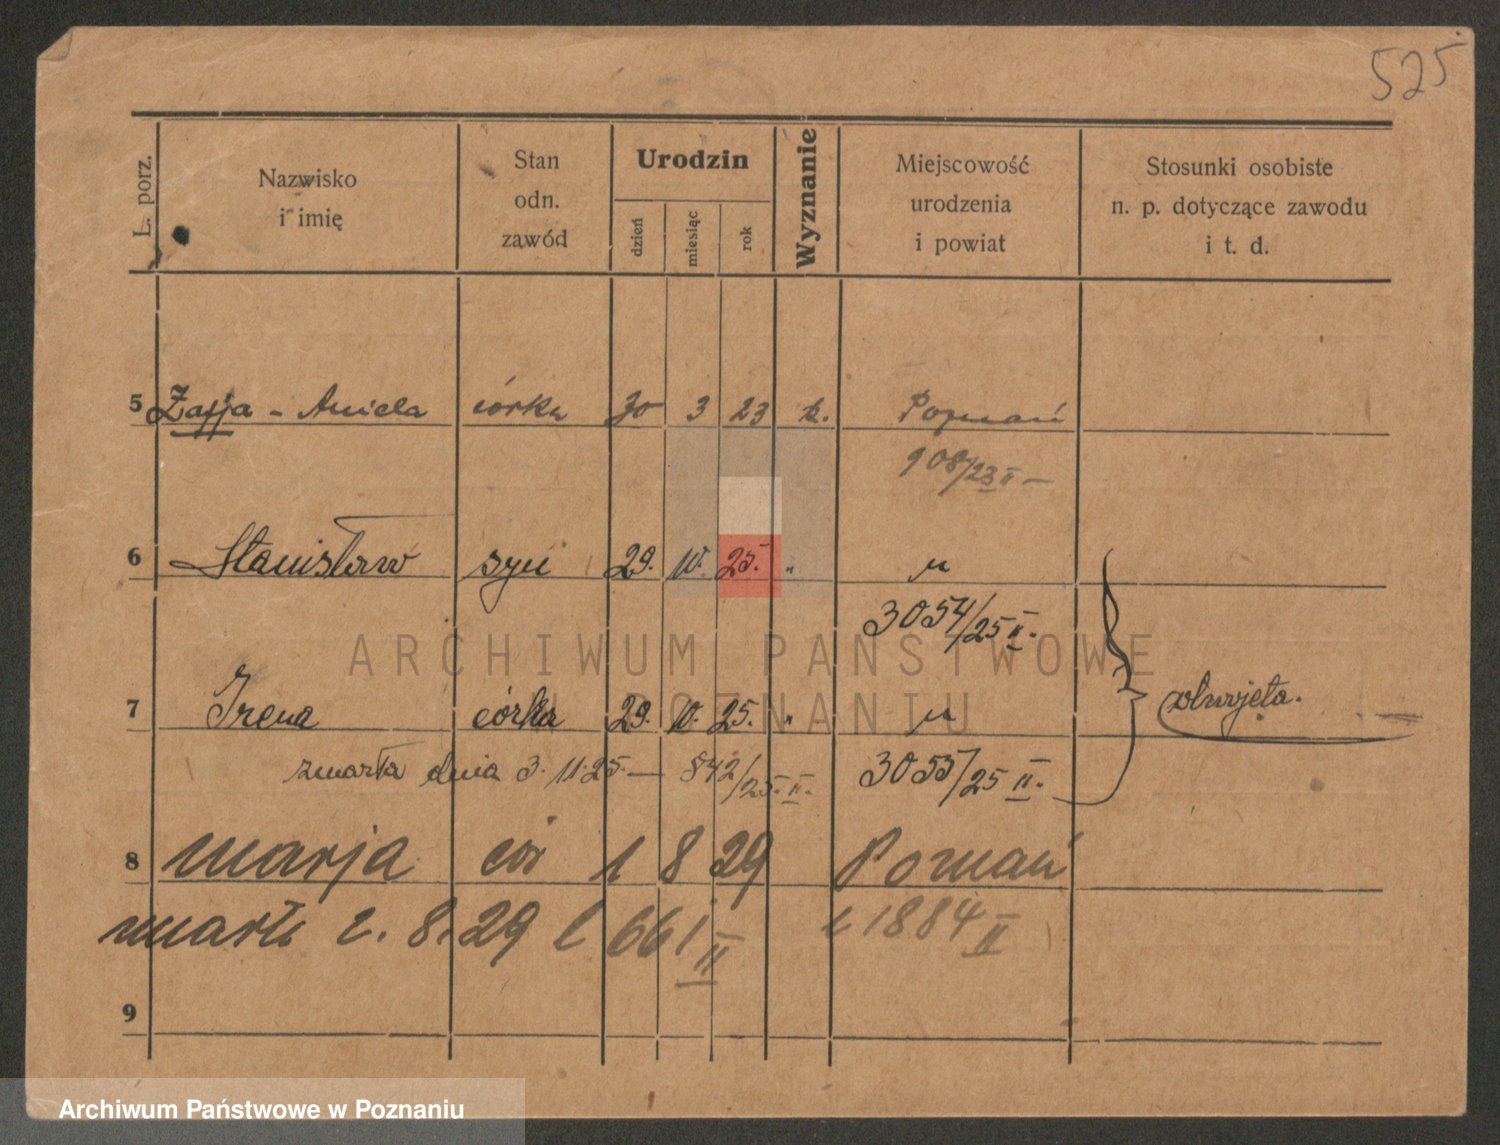 525
L. porz.
Nazwisko
i imię
Stan
odn.
zawód
Urodzin
dzień
miesiąc
rok
Wyznanie
Miejscowość
urodzenia
i powiat
Stosunki osobiste
n. p. dotyczące zawodu
i t. d.
5 Zofja - Aniela córka 30 3 23 k. Poznań
908/23 II -
6 Stanisław syn 29. 10. 25. " "
3054/25 II.
7 Irena córka 29. 10. 25. " "
zmarła dnia 3. 11. 25. — 842/25. II. 3055/25 II.
8 Marja cór 1 8 29 Poznań
zmarła 2. 8. 29 l 661 II 1884 II
9
ARCHIWUM PAŃSTWOWE
W POZNANIU
Archiwum Państwowe w Poznaniu